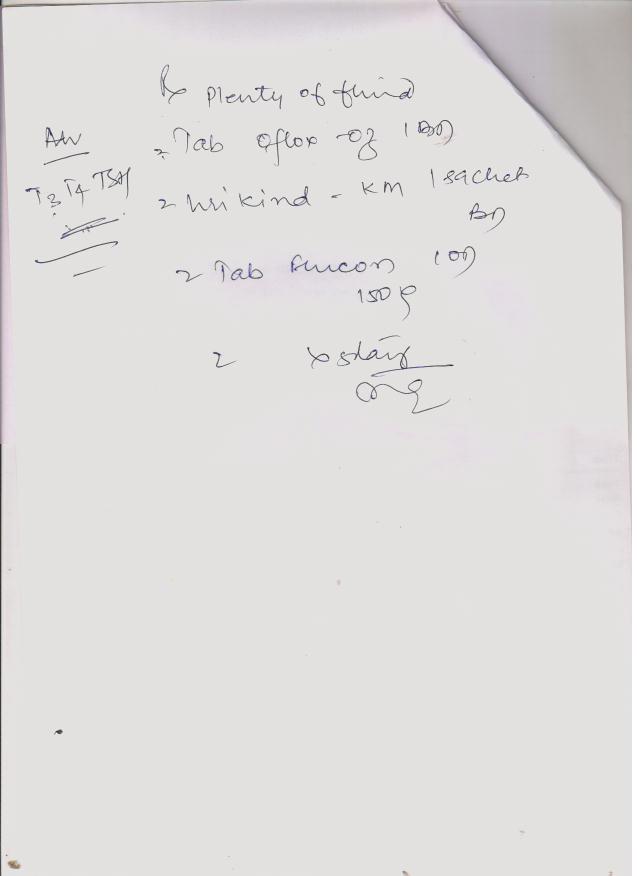 Rx plenty of fluid
Adv
T3 T4 TSH
Tab Oflox-oz 1 BD
Urikind - KM 1 sachet
BD
Tab Flucon 1 OD
150
x 5 days